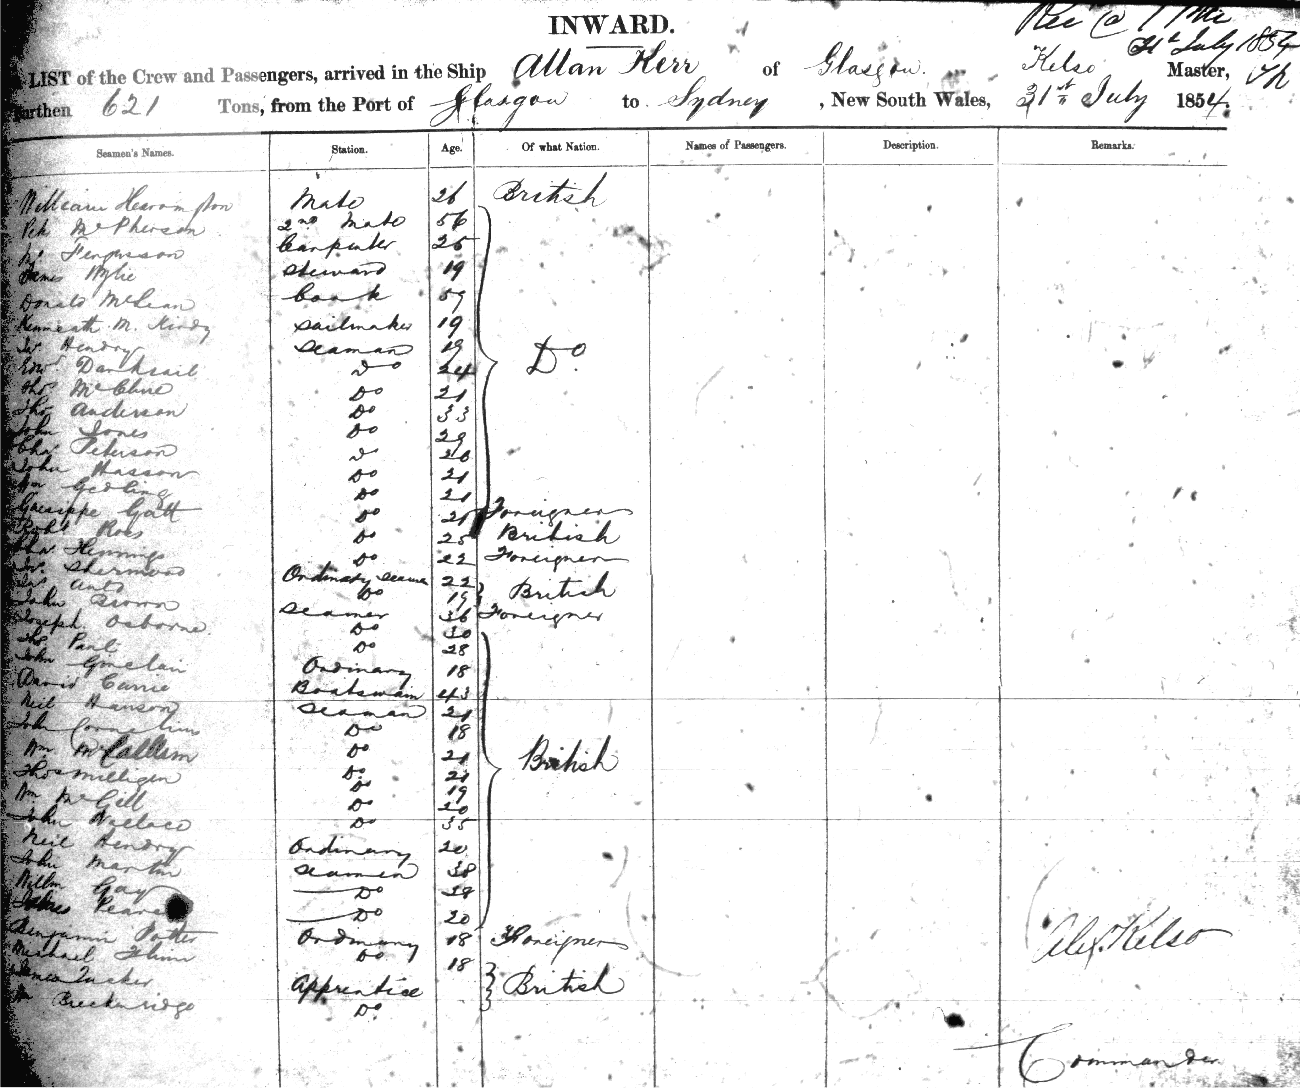 INWARD.
31st July 1854
LIST of the Crew and Passengers, arrived in the Ship Allan Kerr of Glasgow. Kelso Master,
Burthen 621 Tons, from the Port of Glasgow to Sydney, New South Wales, 31st July 1854.
Seamen's Names. Station. Age. Of what Nation. Names of Passengers. Description. Remarks.
William Mate 26 British
McPherson 2nd Mate 56
Fergusson Carpenter 25
James Wylie Steward 19
Donald McLean Cook 59
Kenneath M. Sailmaker 19
Hendry Seaman 19 Do.
Edwd Do 24
Thos McClure Do 21
Thos Anderson Do 33
John Jones Do 29
Chas Peterson Do 26
John Hasson Do 21
Wm Do 21
Guisippe Gatt Do 21 Foreigner
Robt Ross Do 25 British
Chas Hennings Do 22 Foreigner
Sherwood Ordinary Seaman 22 British
Do 19
John Brown Seamen 36 Foreigner
Joseph Osborne Do 30
Thos Paul Do 28
John Ordinary 18
David Currie Boatswain 43
Neil Hanson Seaman 21
John Cornelius Do 18
Wm McCallum Do 21 British
Thos Milligen Do 21
Wm McGill Do 19
John Wallace Do 20
Neil Hendry Do 35
John Martin Ordinary 20
Willm Gay Seamen 38
James Do 29
Benjamin Potter Do 20
Michael Ordinary 18 Foreigner
James Tucker Do 18
Wm Breckenridge Apprentice British
Do
Alexr Kelso
Commander